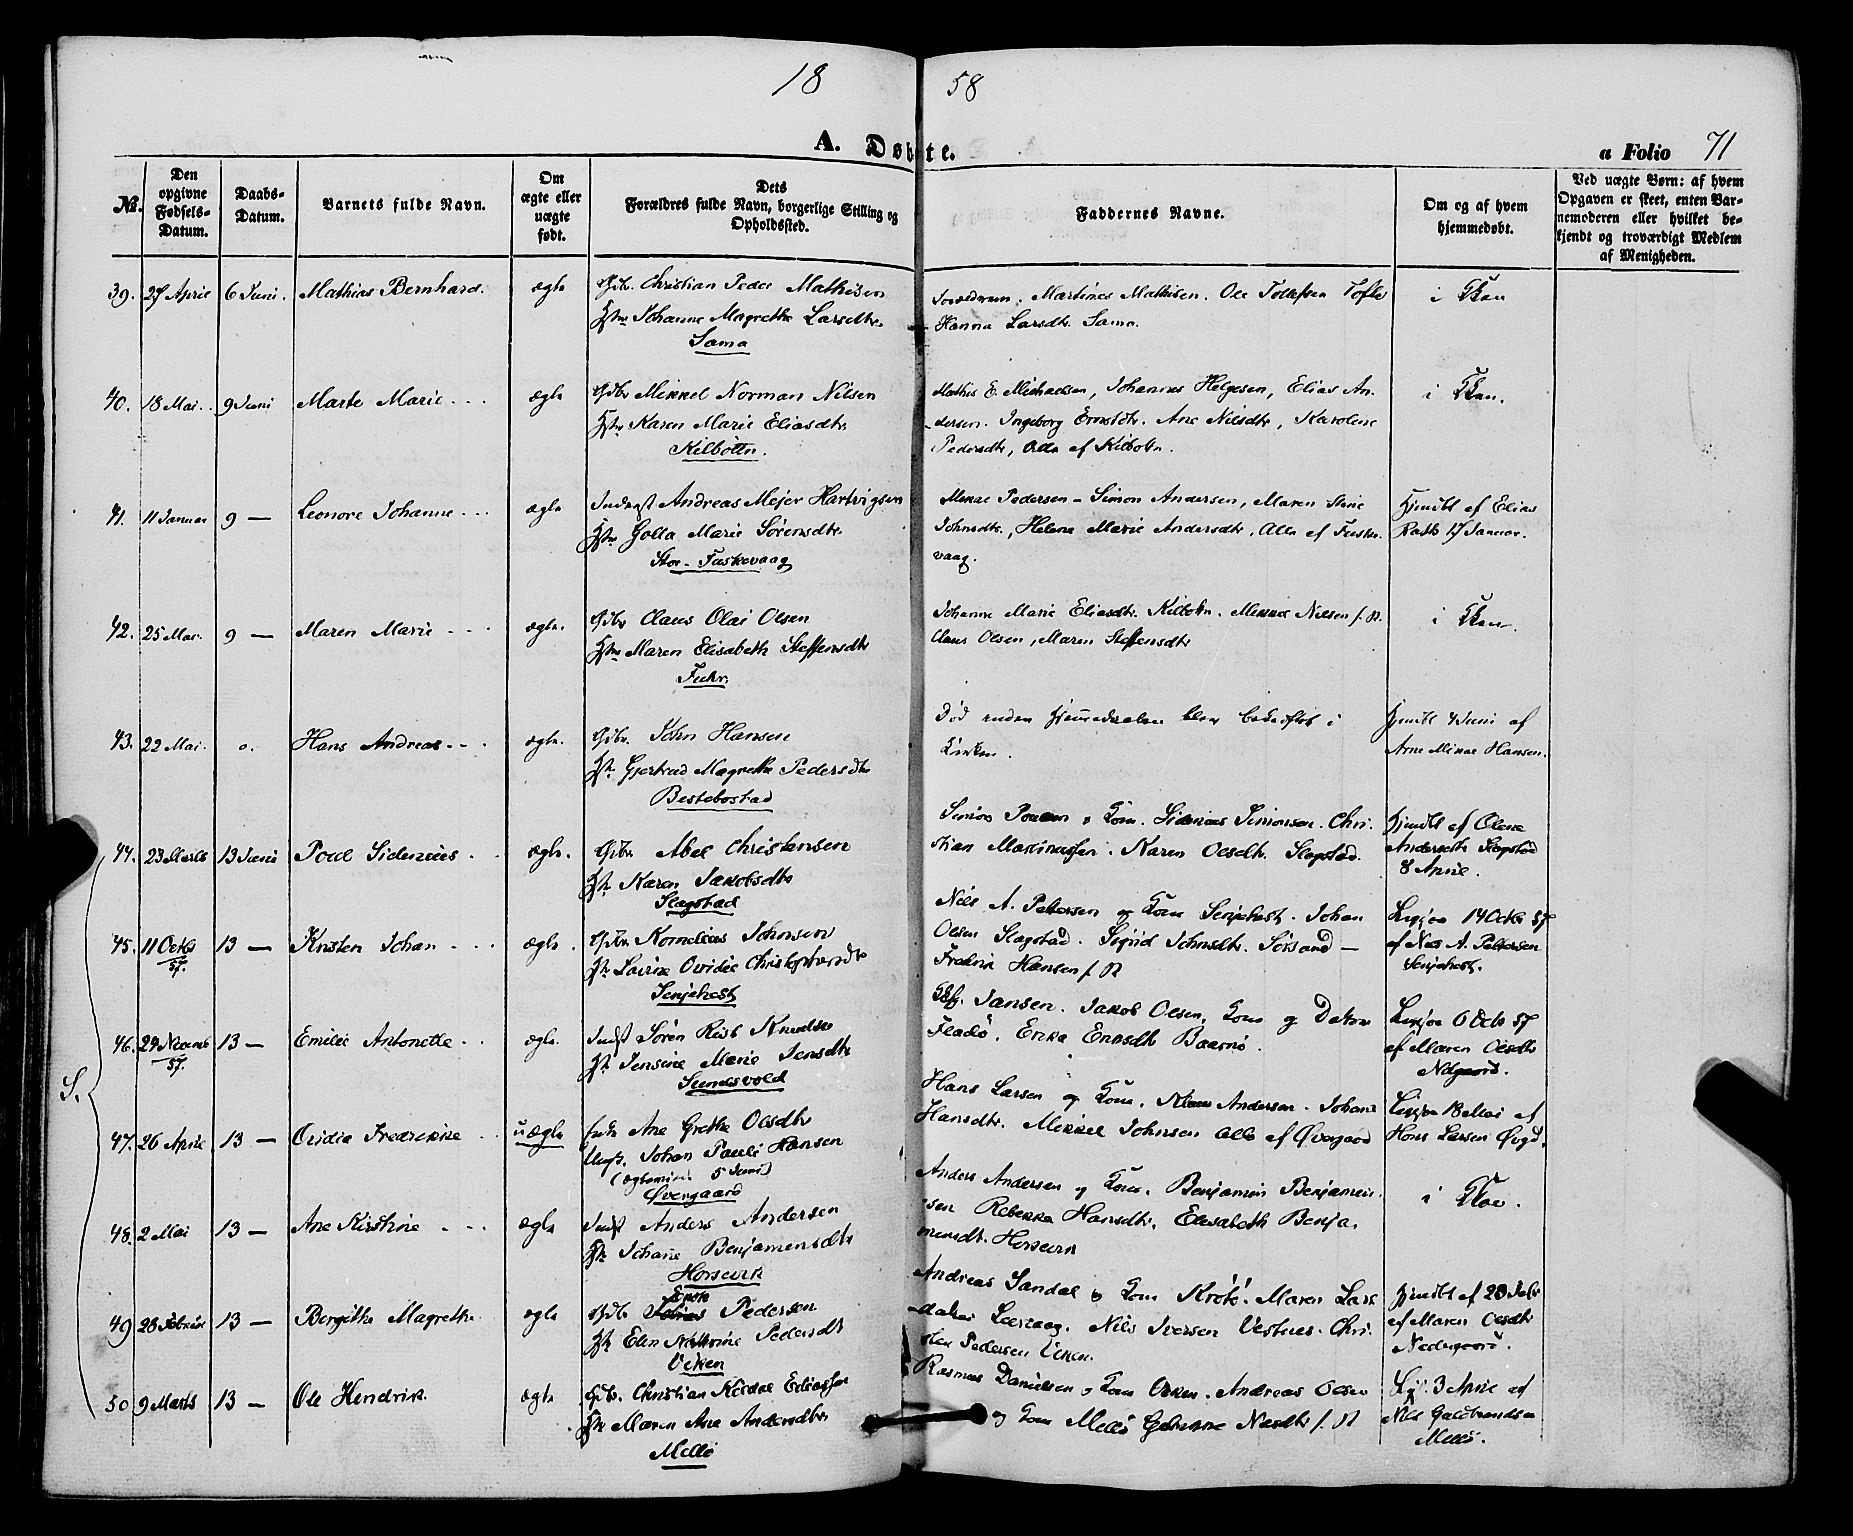 18 58
A. Døbte.
a Folio 71
№.
Den opgivne Fødsels-Datum.
Daabs-Datum.
Barnets fulde Navn.
Om ægte eller uægte født.
Dets Forældres fulde Navn, borgerlige Stilling og Opholdssted.
Faddernes Navne.
Om og af hvem hjemmedøbt.
Ved uægte Børn: af hvem Opgaven er skeet, enten Barnemoderen eller hvilket bekjendt og troværdigt Medlem af Menigheden.
39. 27 April 6 Juni. Mathias Bernhard. ægte Christian Peder Mathisen
Johanne Magrethe Larsdtr
Sama
Forældrene. Martines Mathisen. Ole Tollefsen Tofte
Hanna Larsdtr. Sama.
i Kken
40. 18 Mai. 9 Juni Marte Marie ægte Mikkel Norman Nilsen
Karen Marie Eliasdtr
Kilbotn.
Mathis E. Michaelsen, Johannes Helgesen, Elias An-
dersen. Ingeborg Ernstdtr. Ane Nilsdtr, Karoline
Pedersdtr, Alle af Kilbotn.
i Kken.
41. 11 Januar 9 — Leonore Johanne ægte Andreas Mejer Hartvigsen
Golla Marie Sørensdtr
Stor-Fuskevaag
Mikal Pedersen - Simon Andersen, Maren Stine
Johnsdtr., Helene Marie Andersdtr, Alle af Fuske-
vaag.
Hjmdbt af Elias
17 Januar.
42. 25 Mai. 9 — Maren Marie ægte. Claus Olai Olsen
Maren Elisabeth Steffensdtr
Johanne Marie Eliasdtr. Kilbotn. Mikkel Nilsen
Claus Olsen, Maren Steffensdtr
i Kken.
43. 22 Mai. o. Hans Andreas ægte. John Hansen
Gjertrud Magrethe Pedersdtr
Bestebostad
Død inden Hjemmedaaben blev bekræftet i
Kirken.
Hjmdbt 4 Juni af
Arne Mikal Hansen.
44. 23 Marts 13 Juni Poul Sidenius ægte. Abel Christensen
Karen Jakobsdtr
Slagstad
Simon Poulsen o Kone. Sidenius Simonsen. Chri-
stian Martinussen. Karen Olsdtr. Slagstad.
Hjmdbt af Olene
Andersdtr Slagstad
8 April.
45. 11 Octbr 57. 13 — Kristen Johan ægte. Kornelius Johnsen
Lovise Ovidie Christophersdtr
Senjehest
Nils A. Pettersen og Kone Senjehest. Johan
Olsen Slagstad. Sigrid Johnsdtr. Sørsand —
Fredrik Hansen
14 Octbr 57
af Nils A. Pettersen
Senjehest.
46. 29 Novemb 57. 13 — Emilie Antonette ægte. Søren Rist Knudsen
Jensine Marie Jensdtr
Sundsvold
Jansen. Jakob Olsen, Kone og Datter
Fladø. Erika Eriksdtr Baarnø.
57
af Maren Olsdtr
47. 26 April 13 — Ovidia Fredrikke uægte Ane Grethe Olsdtr
Johan Pauli Hansen
5 Juni)
Øvergaard
Hans Larsen og Kone. Klaus Andersen. Johan
Hansdtr. Mikkel Johnsen alle af Øvergaard
18 Mai af
Hans Larsen Øvgd.
48. 2 Mai 13 — Ane Kirstine ægte Anders Andersen
Johane Benjamensdtr
Horsevik
Anders Andersen og Kone. Benjamin Benjamin-
sen Rebekka Hansdtr. Elisabeth Benja-
minsdt. Horsevik
i Kken.
49 28 Februar 13 — Bergithe Magrethe ægte Enok Pedersen
Elen Pedersdt
Vikken
Andreas Sandal o Kone Maren Lars-
datter Leervaag. Nils Iversen Vesnes. Chri-
sten Pedersen Vikken.
Hjmdbt af 28 Febr
af Maren Olsdtr
Nedregaard.
50 9 Marts 13 — Ole Hendrik ægte Christian Eliassen
Maren Ane Andersdtr
Mellø
Rasmus Danielsen o Kone Andreas Olsen
og Kone Mellø Nilsdtr
3 April af
Nils Guldbrandsen
Mellø.
S.